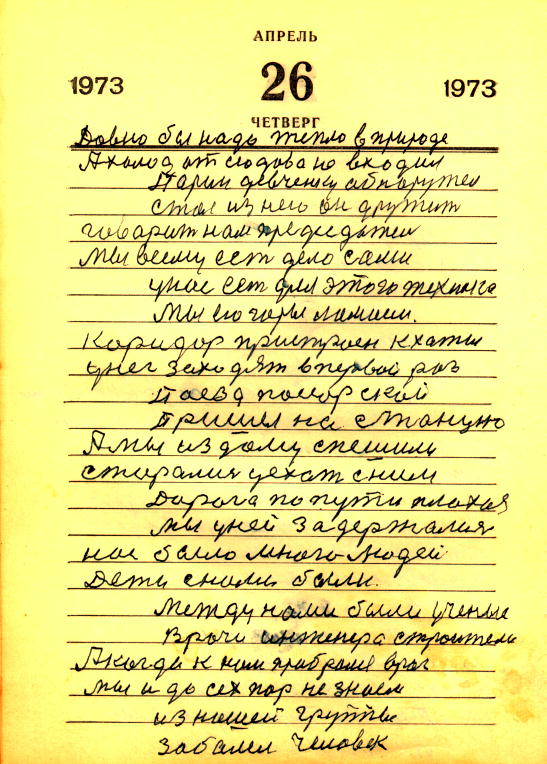 АПРЕЛЬ
1973 26 1973
ЧЕТВЕРГ
Довно бы надо тепло в природе
А холод отсюдова не входил
Парни девченку обнаружел
стал из нею он дружит
говарит нам председател
Мы всему ест дело сами
унас ест для этого техника
Мы ею горы ламаем.
Коридор пристроен кхаты
унег заходят впервой раз
Поезд посорской
Пришел на станцию
А мы из дому спешили
старалися уехат сним
Дорога по пути плохая
мы уней задержалися
нас было много людей
Дети снами были.
Между нами были ученые
Врачи инжинера строители
А когда к нам прибрался враг
мы и до сех пор не знаем
из нашей группы
забалел человек